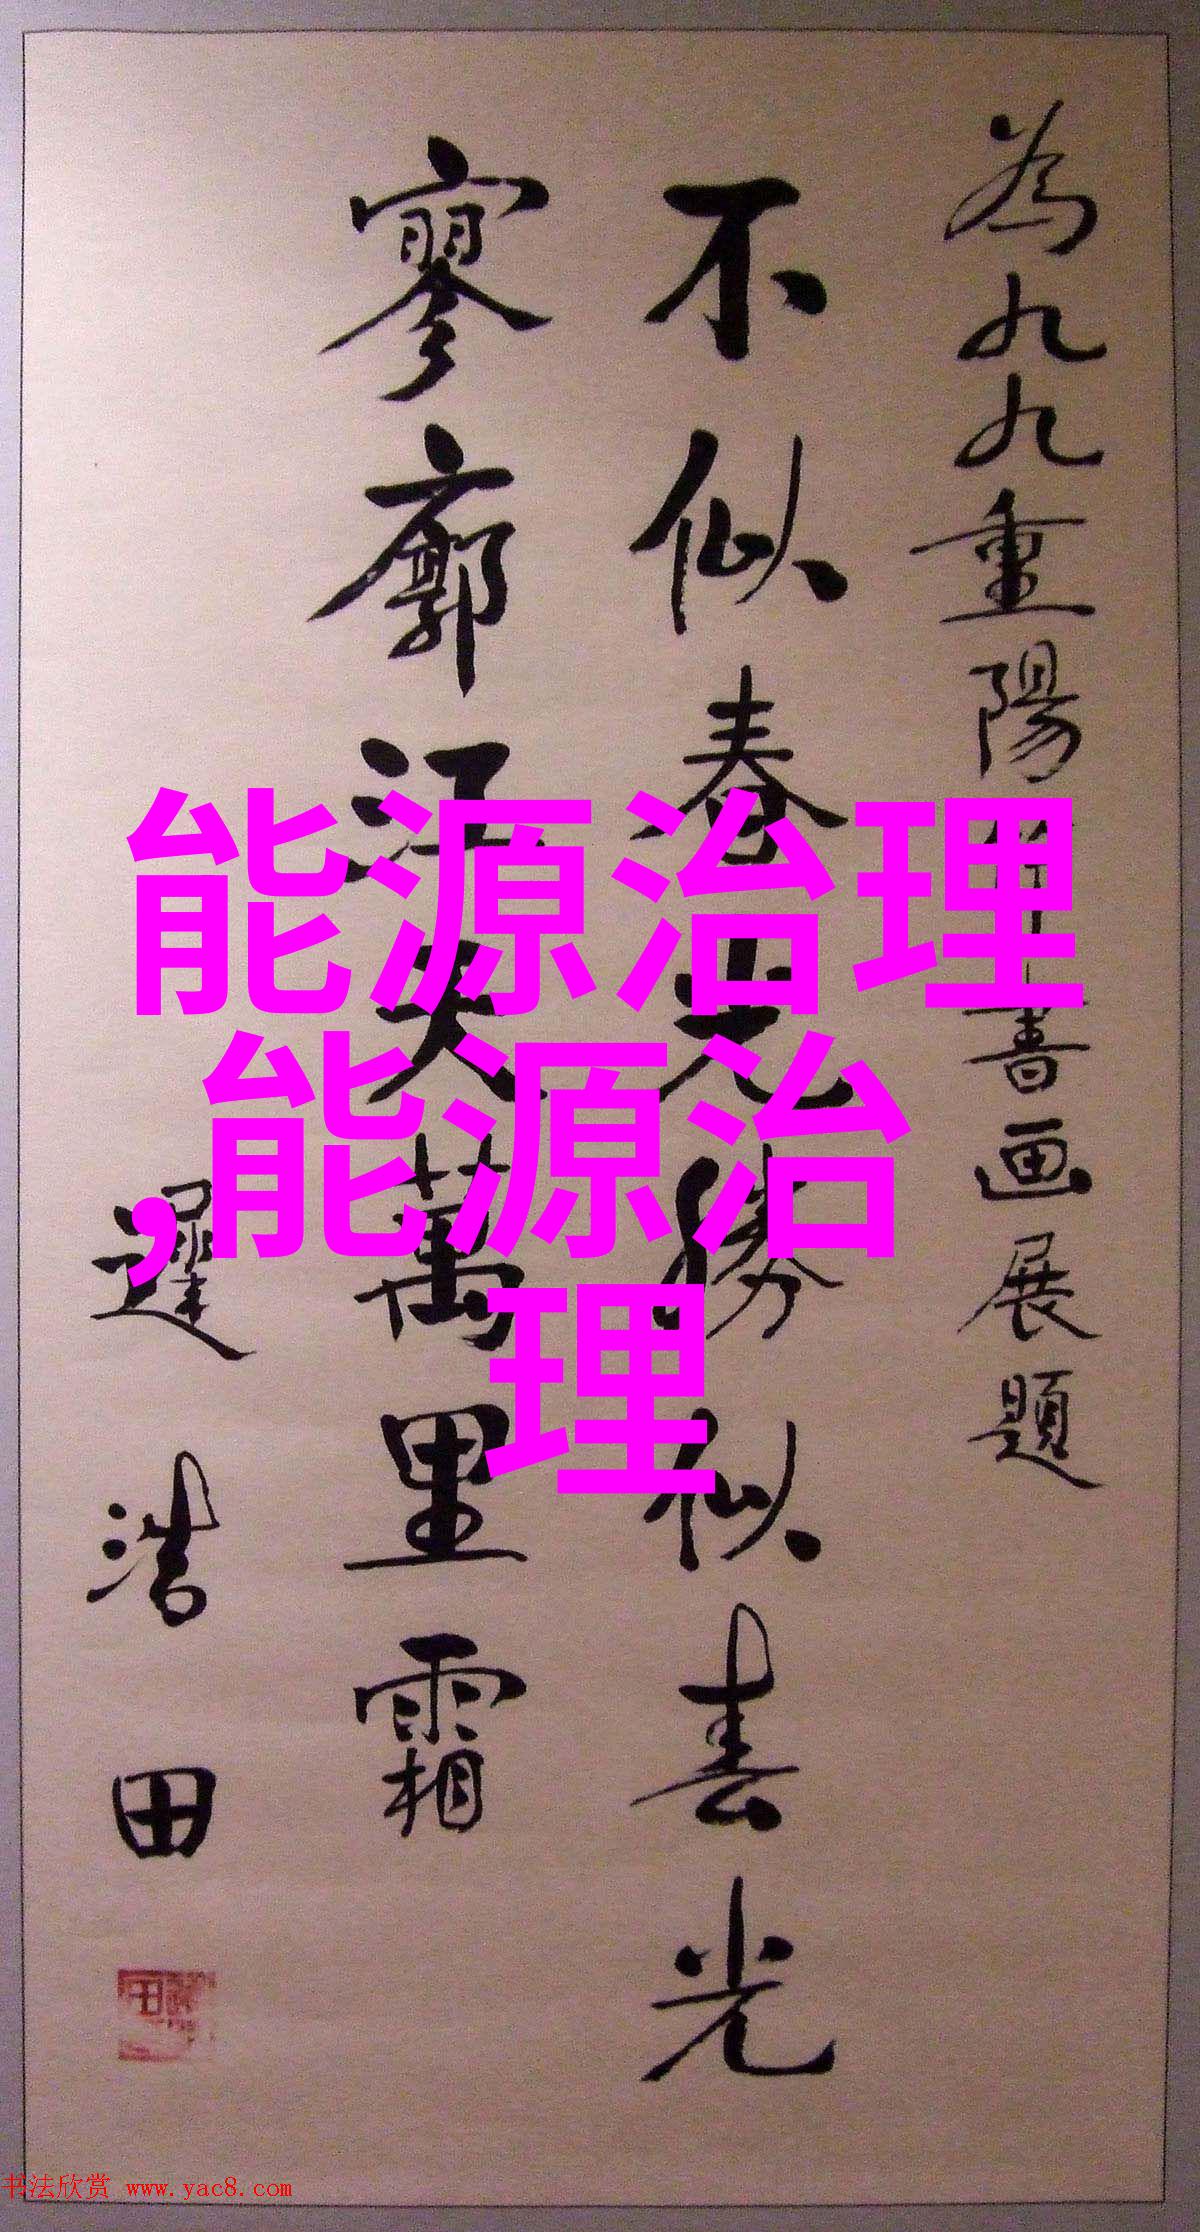 為九九重陽書画展題
不似春光勝似春光
寥廓江天萬里霜
遲浩田
能源治理
,能源治
理
书法欣赏 www.yac8.com